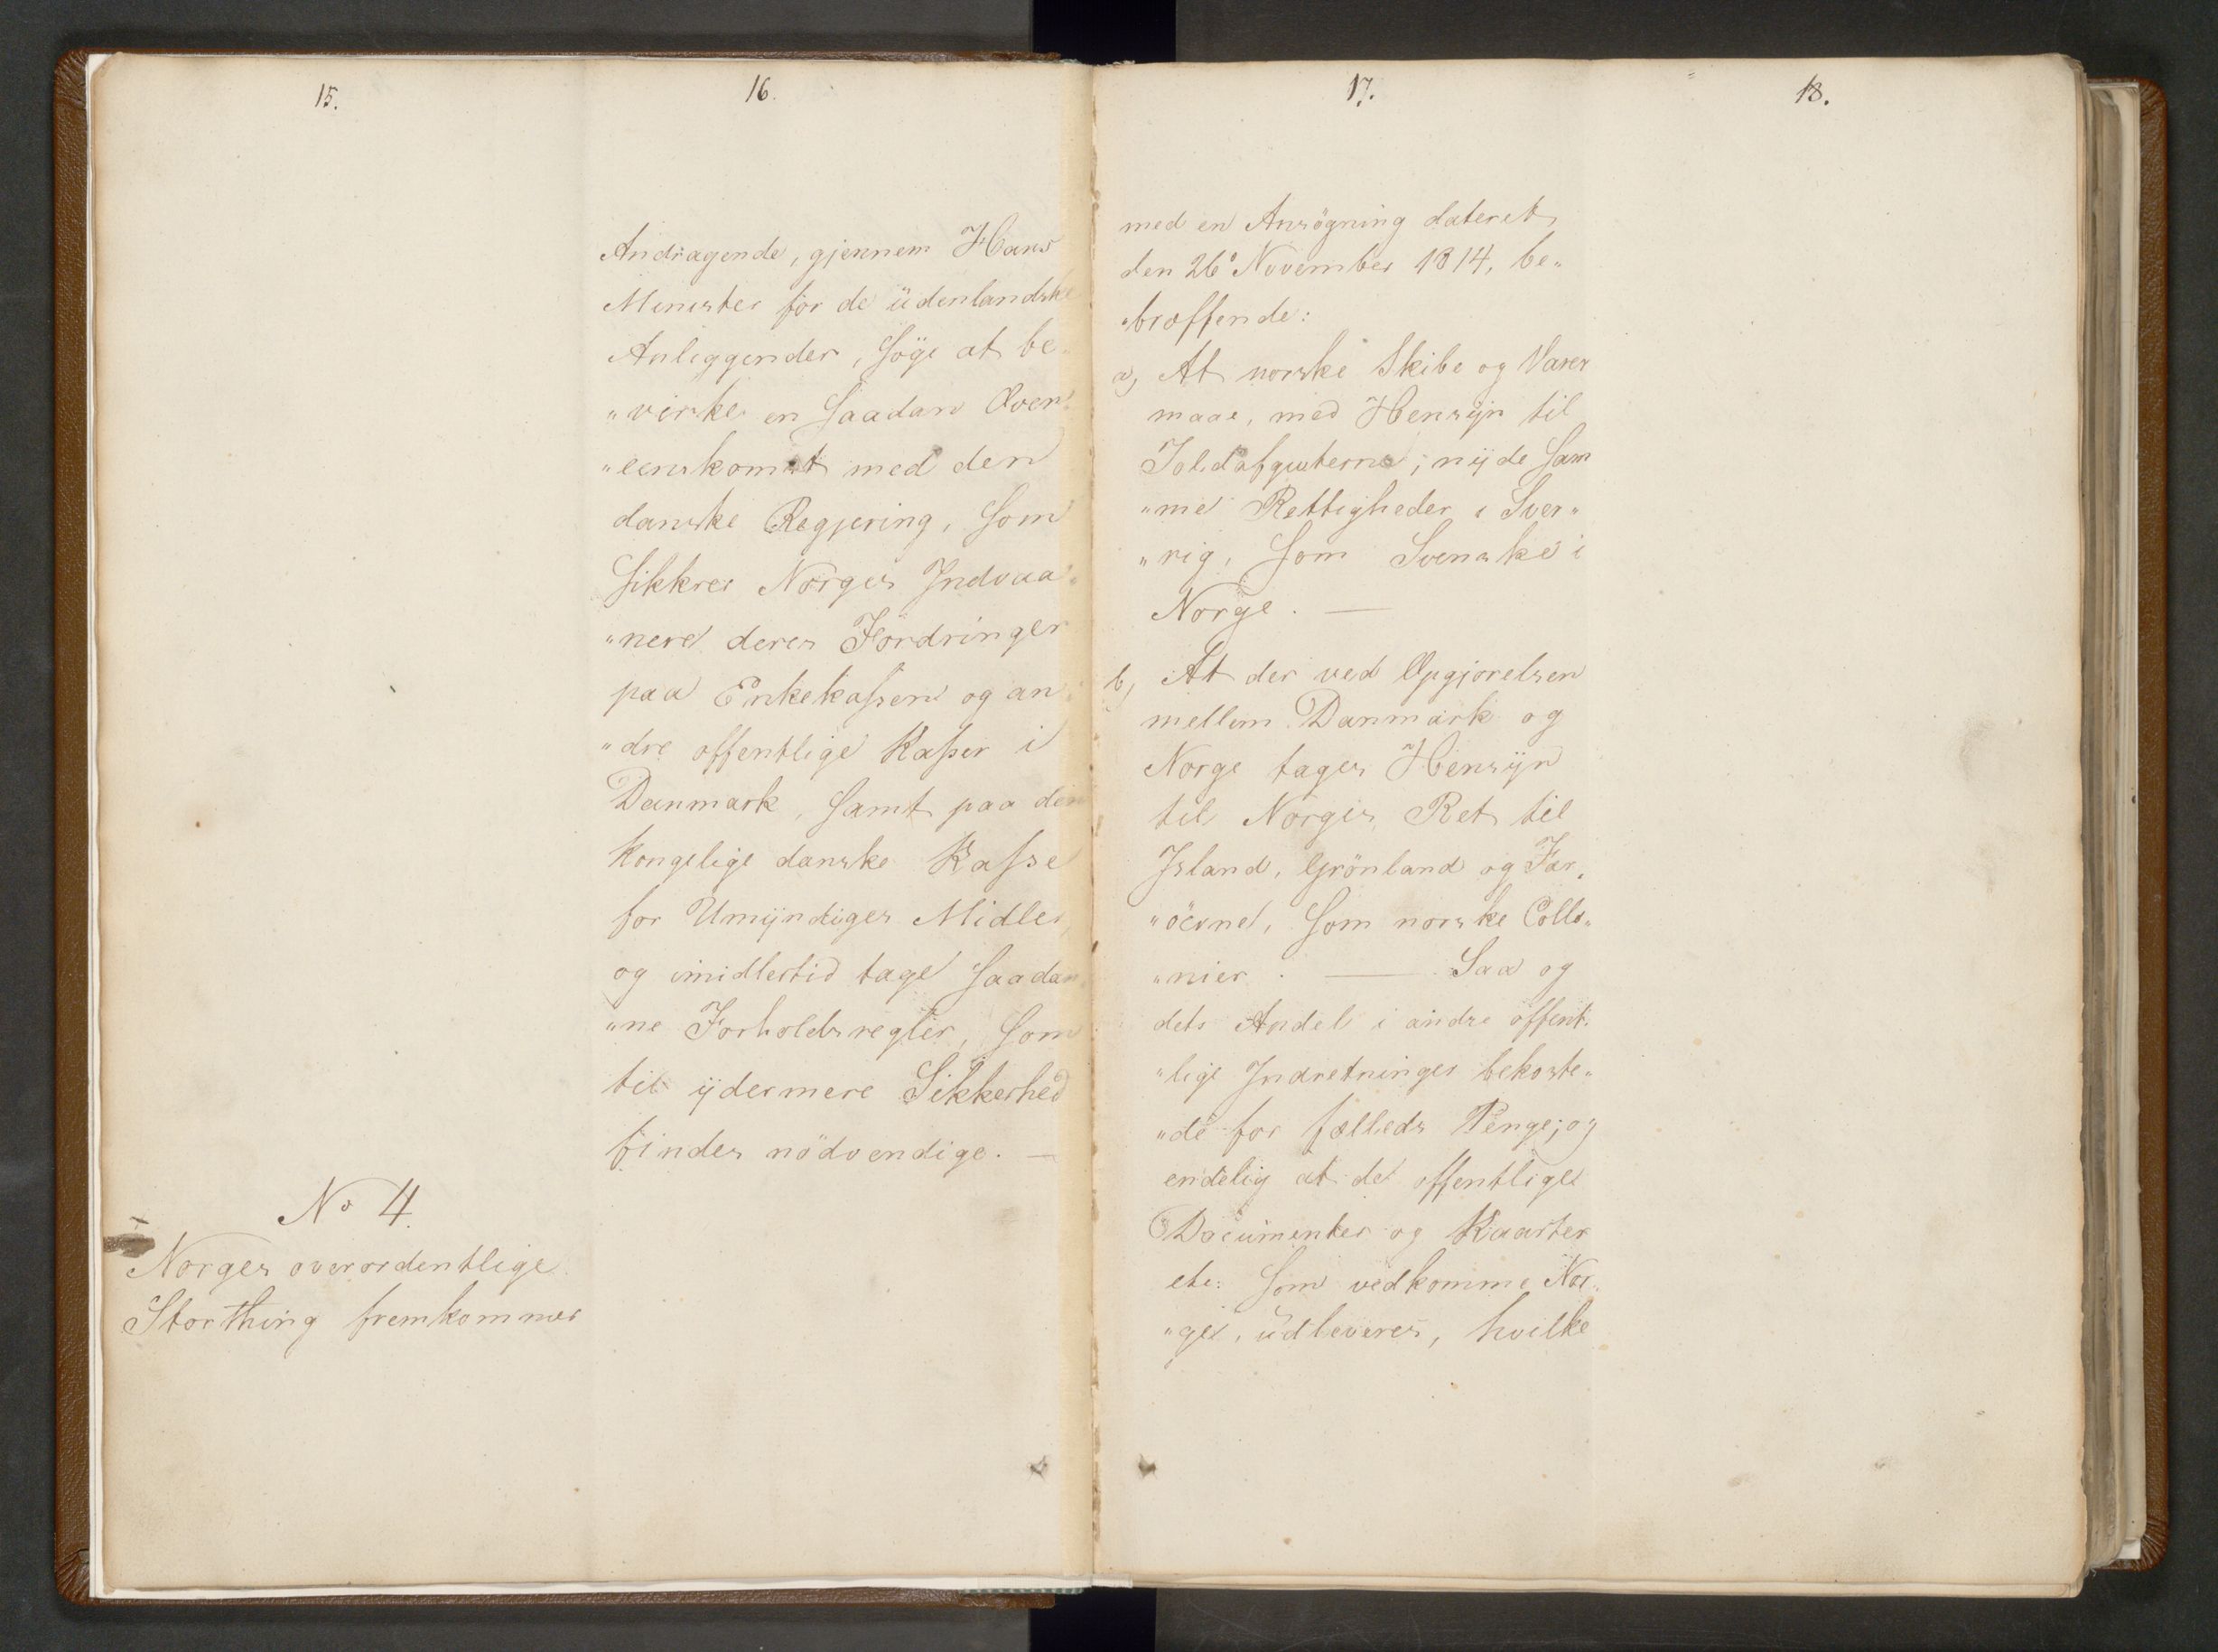 15.
16.
Andragende, gjennem Hans
Minister for de üdenlandske
Anliggender, söge at be„
„virke en saadan Over„
„eenskomst med den
danske Regjering, som
sikkrer Norges Indvaa„
„nere deres Fordringer
paa Enkekassen og an„
„dre offentlige Kasser i
Danmark, samt paa den
kongelige danske Kasse
for Umÿndiges Midler,
og imidlertid tage saadan„
„ne Forholdsregler, som
til ÿdermere Sikkerhed
findes nödvendige. —
No 4.
Norges overordentlige
Storthing fremkommer
17.
18.
med en Ansögning dateret
den 26de November 1814, be„
„træffende:
a, At norske Skibe og Varer
maae, med Hensÿn til
Toldafgivterne, nÿde sam
„me Rettigheder i Sver„
„rig, som Svenske i
Norge. —
b, At der ved Opgjörelsen
mellem Danmark og
Norge tages Hensÿn
til Norges Ret til
Island, Grönland og Fær„
„öerne, som norske Collo„
„nier. — Saa og
dets Andel i andre offent„
„lige Indretninger bekoste„
„de for fælleds Penge; og
endelig at de offentlige
Documenter og Kaarter
etc: som vedkomme Nor„
„ge, üdleveres, hvilke